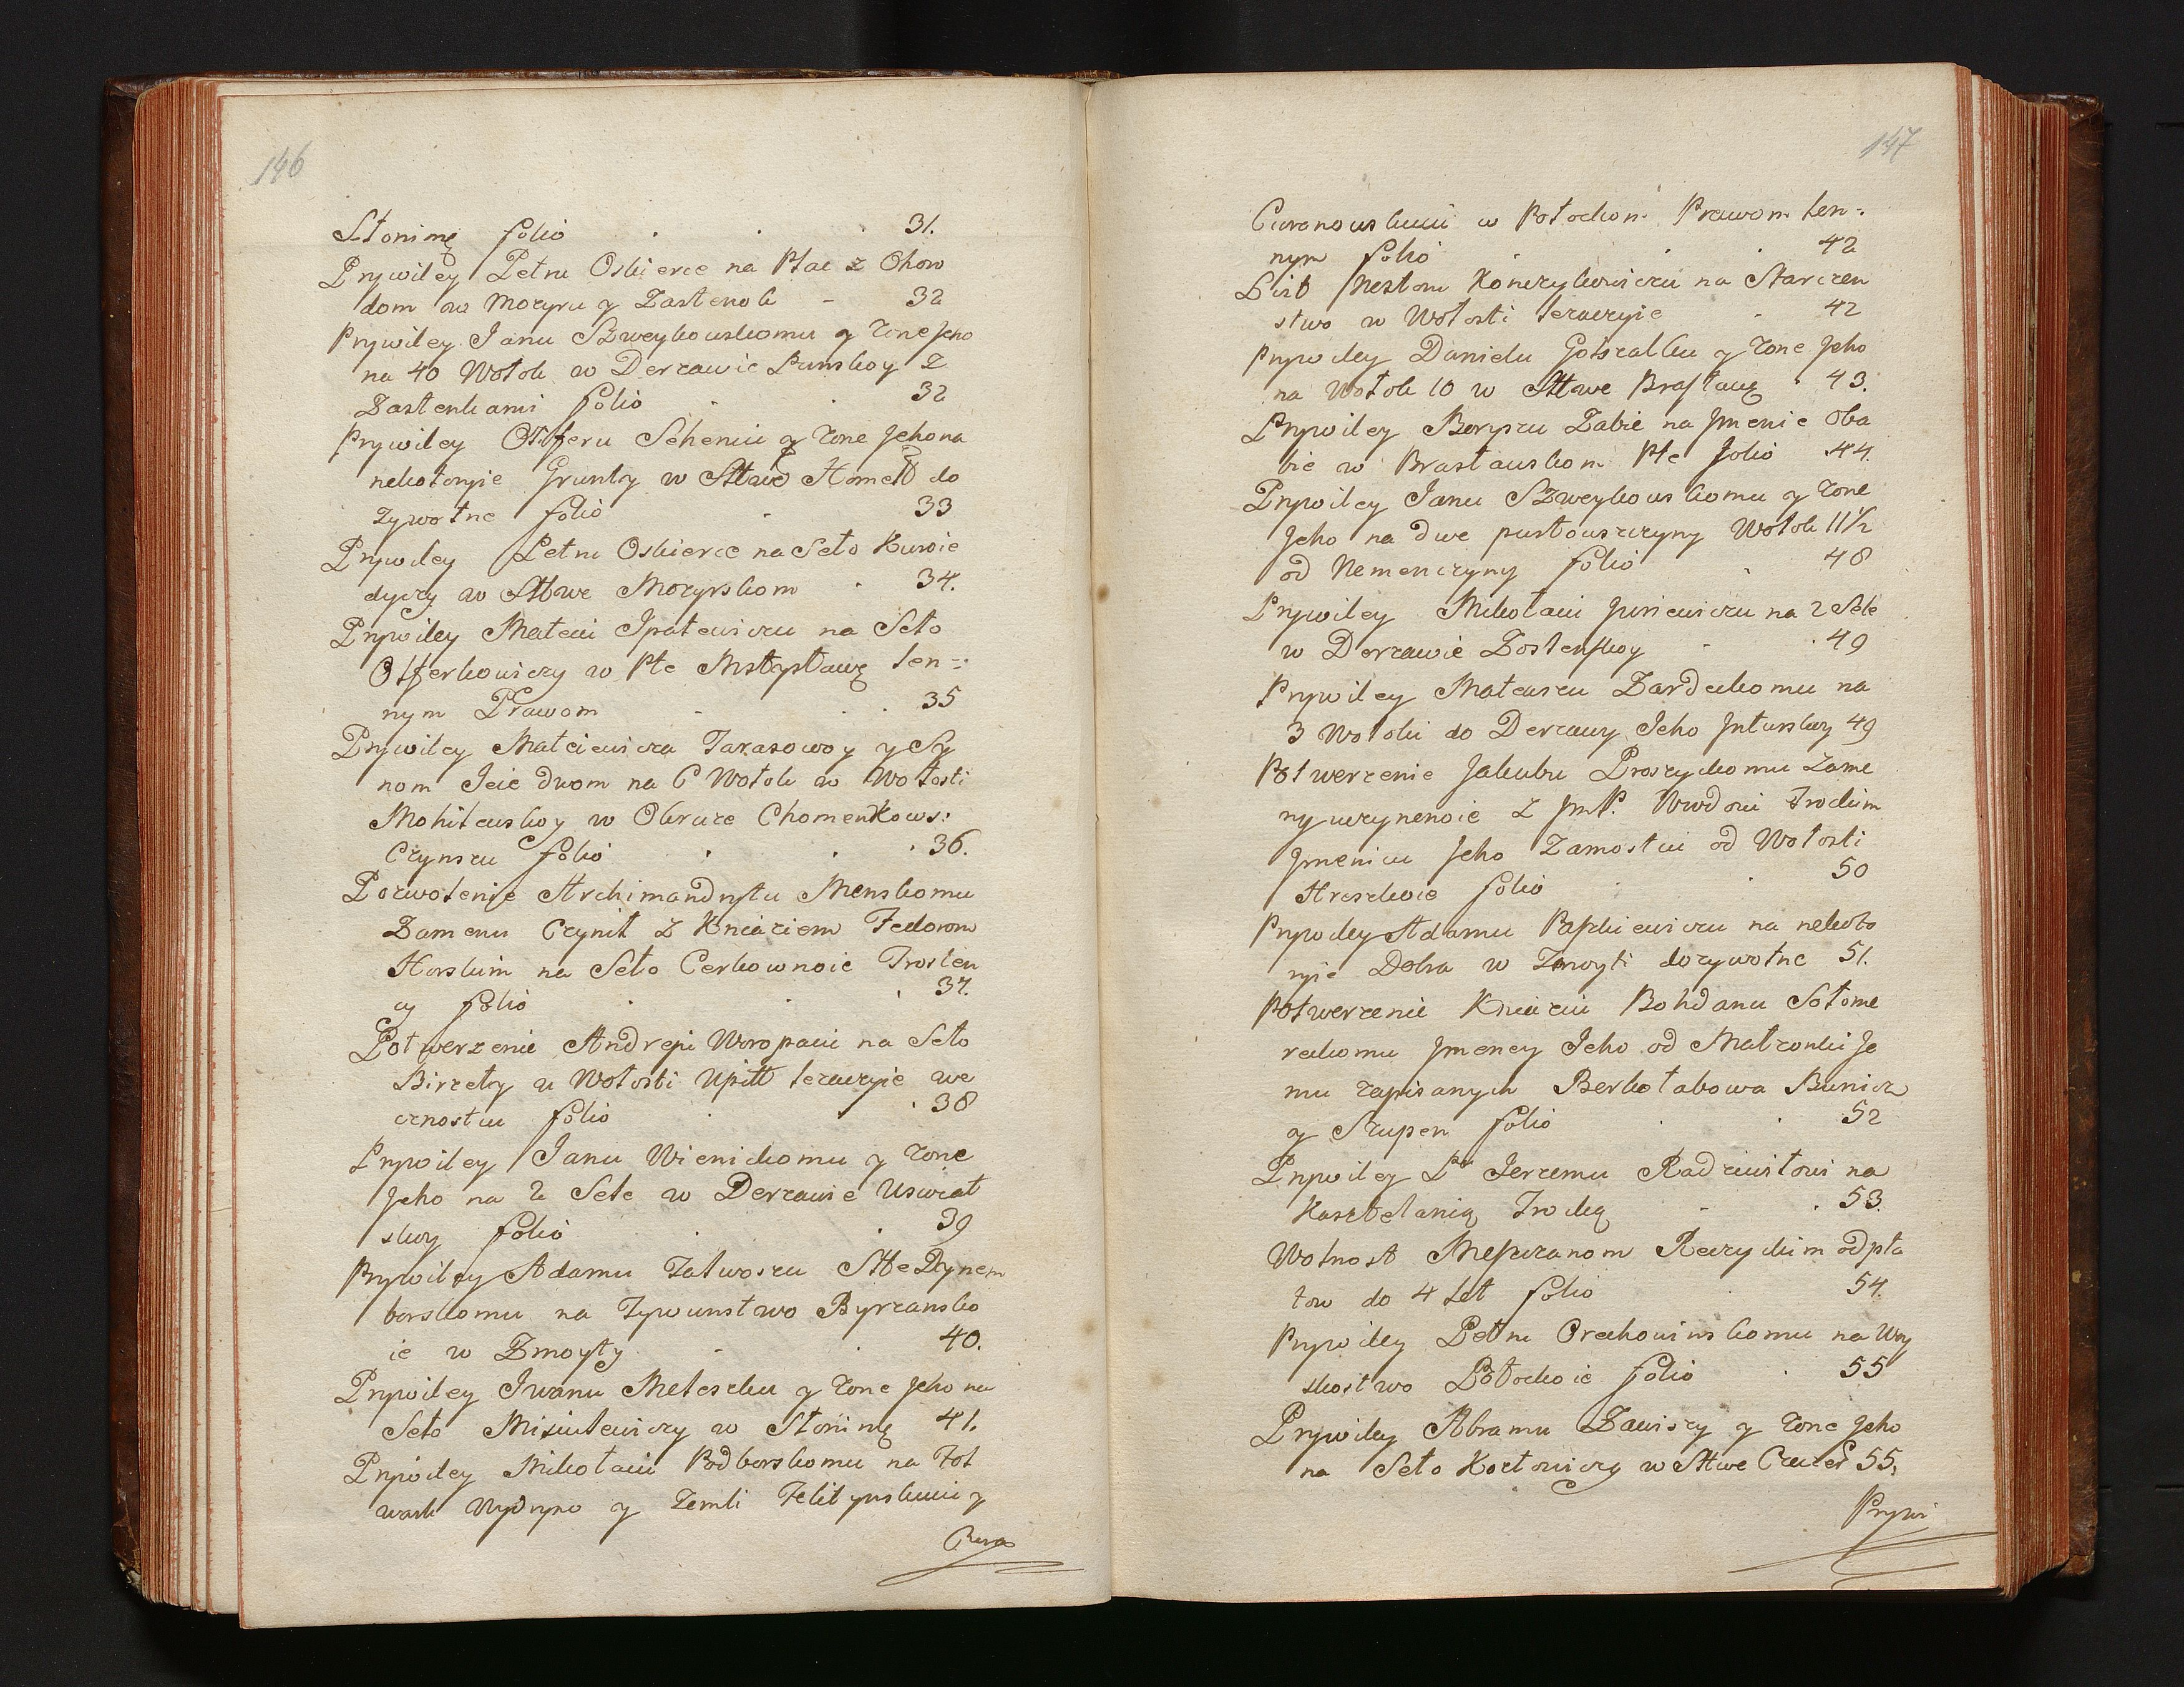 146
Słonimę folio . . . 31.
Prywiley Petru Oskierce na Plac z Ohoro
dom w Mozyru y Zastenok - 32
Prywiley Janu Szweykowskomu y żone Jeho
na 40 Wołok w Derżawie Punskoy z
Zastenkami folio . . 32
Prywiley Ostferu Seheniu y żone Jeho na
nekotoryie Grunty w Sttwe Homel do
żywotne folio . 33
Prywiley Petru Oskierce na Seło Kuroie
dyczy w Sttwe Mozyrskom . 34.
Prywiley Mateiu Ipatewiczu na Seło
Ostferkowiczy w Pte Mstysławę len=
nym Prawom . . . 35
Prywiley Matciewicza Tarasowoy y Sy
nom Jeie dwom na 6 Wołok w Wołosti
Mohilewskoy w Okruze Chomenkows:
Czynszu folio . . . 36.
Pozwolenie Archimandrytu Menskomu
Zamenu Czynit z Kniaziem Fedorom
Horskim na Seło Cerkownoie Trosten
cy folio . . . 37.
Potwerzenie Andreju Woropaiu na Seło
Birzeły u Wołosti Upitt leżaczyie we
cznostiu folio . . . 38
Prywiley Janu Wienickomu y żone
Jeho na 2 Sele w Derżawie Uswiat
skoy folio . . 39
Prywiley Adamu Talwoszu Stte Dynem
borskomu na Tywunstwo Byrżansko
ie w Żmoyty - . 40.
Prywiley Iwanu Meleszku y żone Jeho na
Seło Misiulewiczy w Słonimę 41.
Prywiley Mikołaiu Podborskomu na Fol
wark Wydryno y Zemli Felitynskuiu y
Cwra
147
Ciwronowskuiu w Połockom Prawom len=
nym folio . . 42
List Nestoru Konczykowiczu na Starczen
stwo w Wołosti leżaczyie . 42
Prywiley Danielu Gotszalku y żone Jeho
na Wołok 10 w Sttwe Brasławę . 43.
Prywiley Boryszu Żabie na Jmenie Oba
bie w Brasławskom Pte folio .44.
Prywiley Janu Szweykowskomu y żone
Jeho na dwe pustowszczyny Wołok 11½
od Nemenczyny folio . 48
Prywiley Mikołaiu Jurjewiczu na 2 Sele
w Derżawie Zostenskoy - .49
Prywiley Mateuszu Zardeckomu na
3 Wołoki do Derżawy Jeho Jnturskoy 49
Potwerzenie Jakubu Proszyckomu zame
ny uczynenoie z JmP. Wwdoiu Trockim
Jmeniu Jeho Zamostiu od Wołosti
Hreszkoie folio . . 50
Prywiley Adamu Paszkiewiczu na nekoto
ryie Dobra w Żmoyti dożywotne 51.
Potwerzenie Kniaziu Bohdanu Sołome
reckomu Jmeney Jeho od Małżonki Je
mu zapisanych Berkołabowa Bunicz
y Szupen folio . . 52
Prywiley Pu Jerzemu Radziwiłowi na
Kasztelanię Trockę - . 53.
Wolnost Meszczanom Rzeczyckim od pła
tow do 4 Let folio . 54.
Prywiley Petru Orzechowinskomu na Woy
skostwo Połockoie folio . 55
Prywiley Abramu Zawiszy y żone Jeho
na Seło Kozłowiczy w Sttwe Czeczer 55.
Prywi